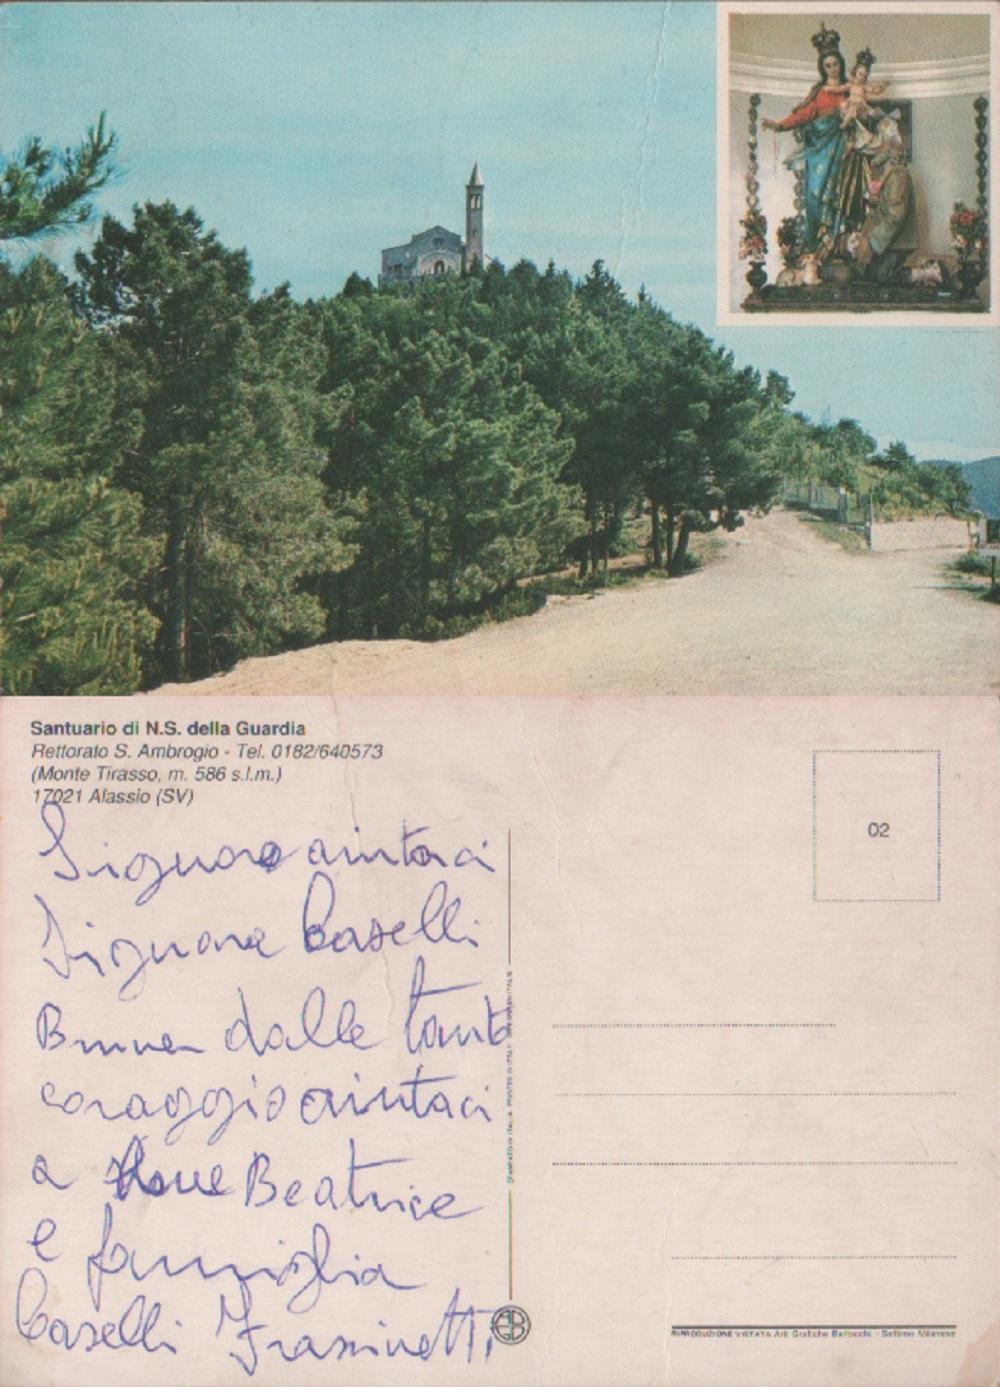 Santuario di N.S. della Guardia
Rettorato S. Ambrogio - Tel. 0182/640573
(Monte Tirasso, m. 586 s.l.m.)
17021 Alassio (SV)
02
Signore aiutaci
Signore Caselli
dalle tant
coraggio aiutaci
a Beatrice
e famiglia
Caselli Frassinetti
STAMPATO IN ITALIA PRINTED IN ITALY
RIPRODUZIONE VIETATA Arti Grafiche Barlocchi - Settimo Milanese